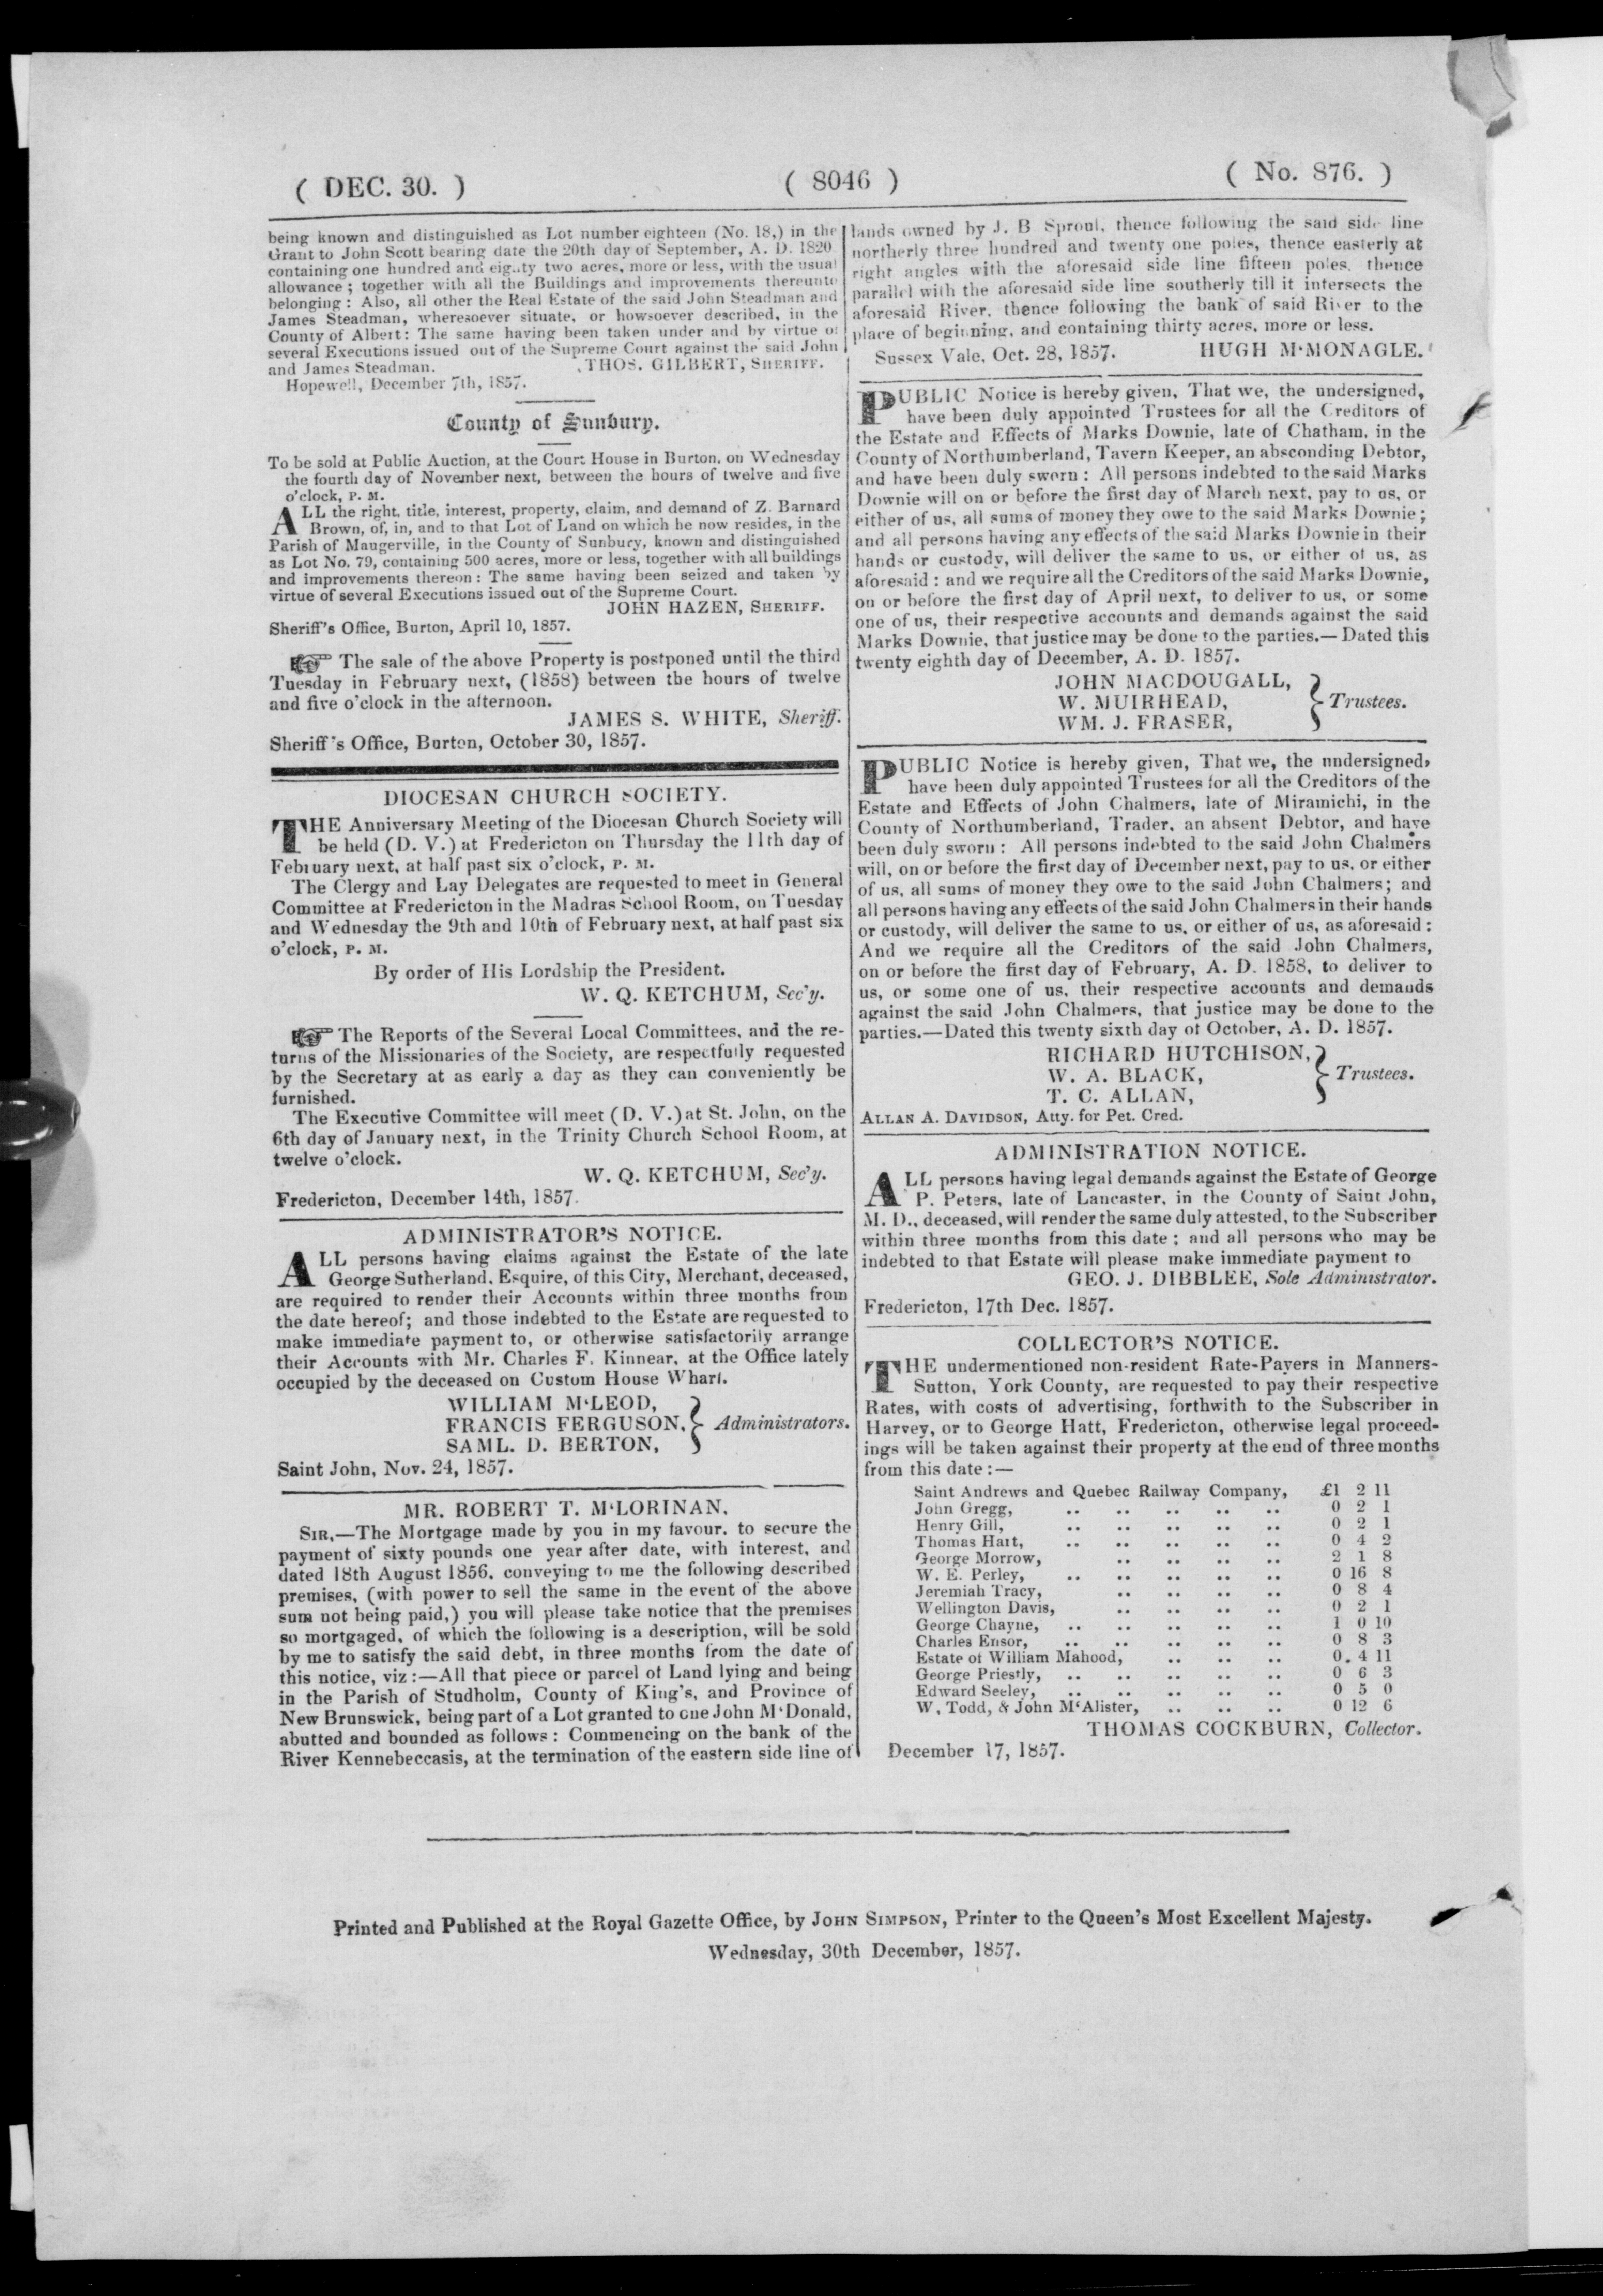 ( DEC. 30. ) ( 8046 ) ( No. 876. )
being known and distinguished as Lot number eighteen (No. 18,) in the
Grant to John Scott bearing date the 20th day of September, A. D. 1820
containing one hundred and eighty two acres, more or less, with the usual
allowance ; together with all the Buildings and improvements thereunto
belonging : Also, all other the Real Estate of the said John Steadman and
James Steadman, wheresoever situate, or howsoever described, in the
County of Albert: The same having been taken under and by virtue of
several Executions issued out of the Supreme Court against the said John
and James Steadman. THOS. GILBERT, SHERIFF.
Hopewell, December 7th, 1857.
County of Sunbury.
To be sold at Public Auction, at the Court House in Burton, on Wednesday
the fourth day of November next, between the hours of twelve and five
o'clock, P. M.
ALL the right, title, interest, property, claim, and demand of Z. Barnard
Brown, of, in, and to that Lot of Land on which he now resides, in the
Parish of Maugerville, in the County of Sunbury, known and distinguished
as Lot No. 79, containing 500 acres, more or less, together with all buildings
and improvements thereon : The same having been seized and taken by
virtue of several Executions issued out of the Supreme Court.
JOHN HAZEN, SHERIFF.
Sheriff's Office, Burton, April 10, 1857.
☞ The sale of the above Property is postponed until the third
Tuesday in February next, (1858) between the hours of twelve
and five o'clock in the afternoon.
JAMES S. WHITE, Sheriff.
Sheriff's Office, Burton, October 30, 1857.
DIOCESAN CHURCH SOCIETY.
THE Anniversary Meeting of the Diocesan Church Society will
be held (D. V.) at Fredericton on Thursday the 11th day of
February next, at half past six o'clock, P. M.
The Clergy and Lay Delegates are requested to meet in General
Committee at Fredericton in the Madras School Room, on Tuesday
and Wednesday the 9th and 10th of February next, at half past six
o'clock, P. M.
By order of His Lordship the President.
W. Q. KETCHUM, Sec'y.
☞ The Reports of the Several Local Committees, and the re-
turns of the Missionaries of the Society, are respectfully requested
by the Secretary at as early a day as they can conveniently be
furnished.
The Executive Committee will meet (D. V.) at St. John, on the
6th day of January next, in the Trinity Church School Room, at
twelve o'clock.
W. Q. KETCHUM, Sec'y.
Fredericton, December 14th, 1857.
ADMINISTRATOR'S NOTICE.
ALL persons having claims against the Estate of the late
George Sutherland, Esquire, of this City, Merchant, deceased,
are required to render their Accounts within three months from
the date hereof; and those indebted to the Estate are requested to
make immediate payment to, or otherwise satisfactorily arrange
their Accounts with Mr. Charles F. Kinnear, at the Office lately
occupied by the deceased on Custom House Wharf.
WILLIAM M'LEOD,
FRANCIS FERGUSON, } Administrators.
SAML. D. BERTON,
Saint John, Nov. 24, 1857.
MR. ROBERT T. M'LORINAN,
SIR,—The Mortgage made by you in my favour, to secure the
payment of sixty pounds one year after date, with interest, and
dated 18th August 1856, conveying to me the following described
premises, (with power to sell the same in the event of the above
sum not being paid,) you will please take notice that the premises
so mortgaged, of which the following is a description, will be sold
by me to satisfy the said debt, in three months from the date of
this notice, viz :—All that piece or parcel of Land lying and being
in the Parish of Studholm, County of King's, and Province of
New Brunswick, being part of a Lot granted to one John M'Donald,
abutted and bounded as follows : Commencing on the bank of the
River Kennebeccasis, at the termination of the eastern side line of
lands owned by J. B Sproul, thence following the said side line
northerly three hundred and twenty one poles, thence easterly at
right angles with the aforesaid side line fifteen poles, thence
parallel with the aforesaid side line southerly till it intersects the
aforesaid River, thence following the bank of said River to the
place of beginning, and containing thirty acres, more or less.
Sussex Vale, Oct. 28, 1857. HUGH M'MONAGLE.
PUBLIC Notice is hereby given, That we, the undersigned,
have been duly appointed Trustees for all the Creditors of
the Estate and Effects of Marks Downie, late of Chatham, in the
County of Northumberland, Tavern Keeper, an absconding Debtor,
and have been duly sworn : All persons indebted to the said Marks
Downie will on or before the first day of March next, pay to us, or
either of us, all sums of money they owe to the said Marks Downie ;
and all persons having any effects of the said Marks Downie in their
hands or custody, will deliver the same to us, or either of us, as
aforesaid : and we require all the Creditors of the said Marks Downie,
on or before the first day of April next, to deliver to us, or some
one of us, their respective accounts and demands against the said
Marks Downie, that justice may be done to the parties.—Dated this
twenty eighth day of December, A. D. 1857.
JOHN MACDOUGALL,
W. MUIRHEAD, } Trustees.
WM. J. FRASER,
PUBLIC Notice is hereby given, That we, the undersigned,
have been duly appointed Trustees for all the Creditors of the
Estate and Effects of John Chalmers, late of Miramichi, in the
County of Northumberland, Trader, an absent Debtor, and have
been duly sworn : All persons indebted to the said John Chalmers
will, on or before the first day of December next, pay to us, or either
of us, all sums of money they owe to the said John Chalmers; and
all persons having any effects of the said John Chalmers in their hands
or custody, will deliver the same to us, or either of us, as aforesaid :
And we require all the Creditors of the said John Chalmers,
on or before the first day of February, A. D. 1858, to deliver to
us, or some one of us, their respective accounts and demands
against the said John Chalmers, that justice may be done to the
parties.—Dated this twenty sixth day of October, A. D. 1857.
RICHARD HUTCHISON,
W. A. BLACK, } Trustees.
T. C. ALLAN,
ALLAN A. DAVIDSON, Atty. for Pet. Cred.
ADMINISTRATION NOTICE.
ALL persons having legal demands against the Estate of George
P. Peters, late of Lancaster, in the County of Saint John,
M. D., deceased, will render the same duly attested, to the Subscriber
within three months from this date ; and all persons who may be
indebted to that Estate will please make immediate payment to
GEO. J. DIBBLEE, Sole Administrator.
Fredericton, 17th Dec. 1857.
COLLECTOR'S NOTICE.
THE undermentioned non-resident Rate-Payers in Manners-
Sutton, York County, are requested to pay their respective
Rates, with costs of advertising, forthwith to the Subscriber in
Harvey, or to George Hatt, Fredericton, otherwise legal proceed-
ings will be taken against their property at the end of three months
from this date :—
Saint Andrews and Quebec Railway Company, £1 2 11
John Gregg, .. .. .. .. .. 0 2 1
Henry Gill, .. .. .. .. .. 0 2 1
Thomas Hart, .. .. .. .. .. 0 4 2
George Morrow, .. .. .. .. 2 1 8
W. E. Perley, .. .. .. .. .. 0 16 8
Jeremiah Tracy, .. .. .. .. 0 8 4
Wellington Davis, .. .. .. .. 0 2 1
George Chayne, .. .. .. .. .. 1 0 10
Charles Ensor, .. .. .. .. .. 0 8 3
Estate of William Mahood, .. .. .. 0. 4 11
George Priestly, .. .. .. .. .. 0 6 3
Edward Seeley, .. .. .. .. .. 0 5 0
W. Todd, & John M'Alister, .. .. .. 0 12 6
THOMAS COCKBURN, Collector.
December 17, 1857.
Printed and Published at the Royal Gazette Office, by JOHN SIMPSON, Printer to the Queen's Most Excellent Majesty.
Wednesday, 30th December, 1857.